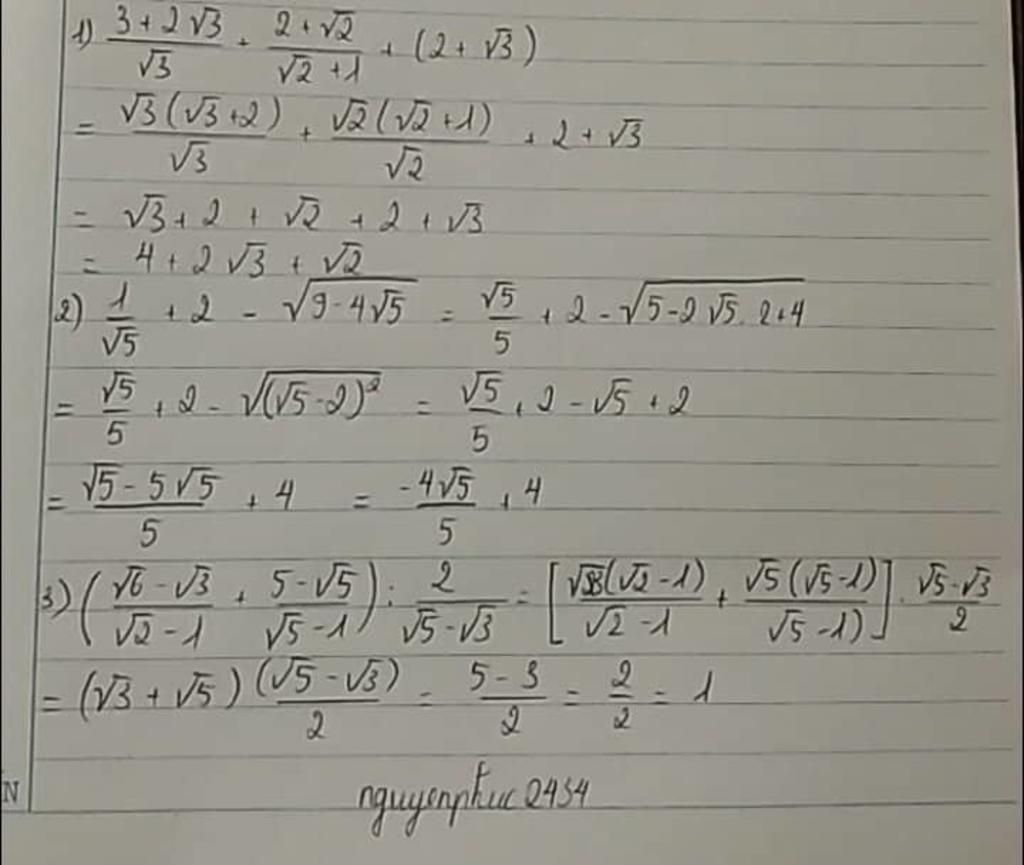 1) (3 + 2√3)/√3 + (2 + √2)/(√2 + 1) + (2 + √3)
= √3(√3 + 2)/√3 + √2(√2 + 1)/√2 + 2 + √3
= √3 + 2 + √2 + 2 + √3
= 4 + 2√3 + √2
2) 1/√5 + 2 - √(9 - 4√5) = √5/5 + 2 - √(5 - 2√5 . 2 + 4)
= √5/5 + 2 - √((√5 - 2)²) = √5/5 + 2 - √5 + 2
= (√5 - 5√5)/5 + 4 = -4√5/5 + 4
3) ((√6 - √3)/(√2 - 1) + (5 - √5)/(√5 - 1)) : 2/(√5 - √3) = [√3(√2 - 1)/(√2 - 1) + √5(√5 - 1)/(√5 - 1)] . (√5 - √3)/2
= (√3 + √5) (√5 - √3)/2 = (5 - 3)/2 = 2/2 = 1
N
nguyenphuc2434